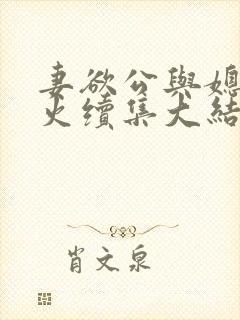 妻欲公與媳
火續集大結
肖文泉